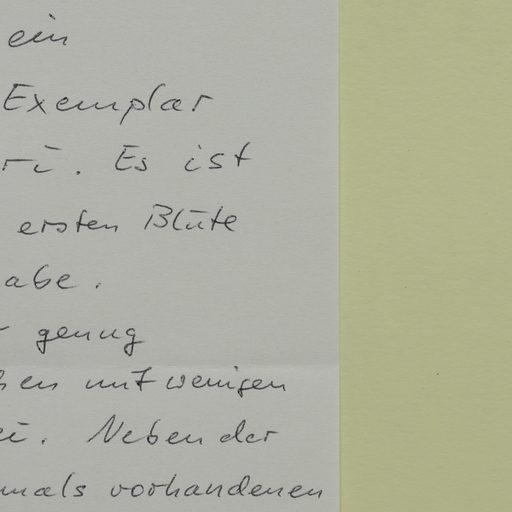 ein
Exemplar
ri. Es ist
ersten Blüte
abe.
genug
en mit wenigen
ei. Neben der
mals vorhandenen